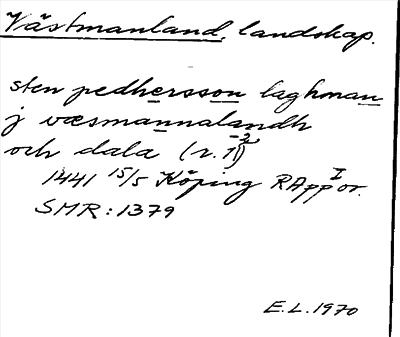 Västmanland, landskap.
sten pedhersson laghman
j væsmannalandh
och dala (r. 1-2)
1441 15/5 Köping RApp I or.
SMR: 1379
E.L. 1970